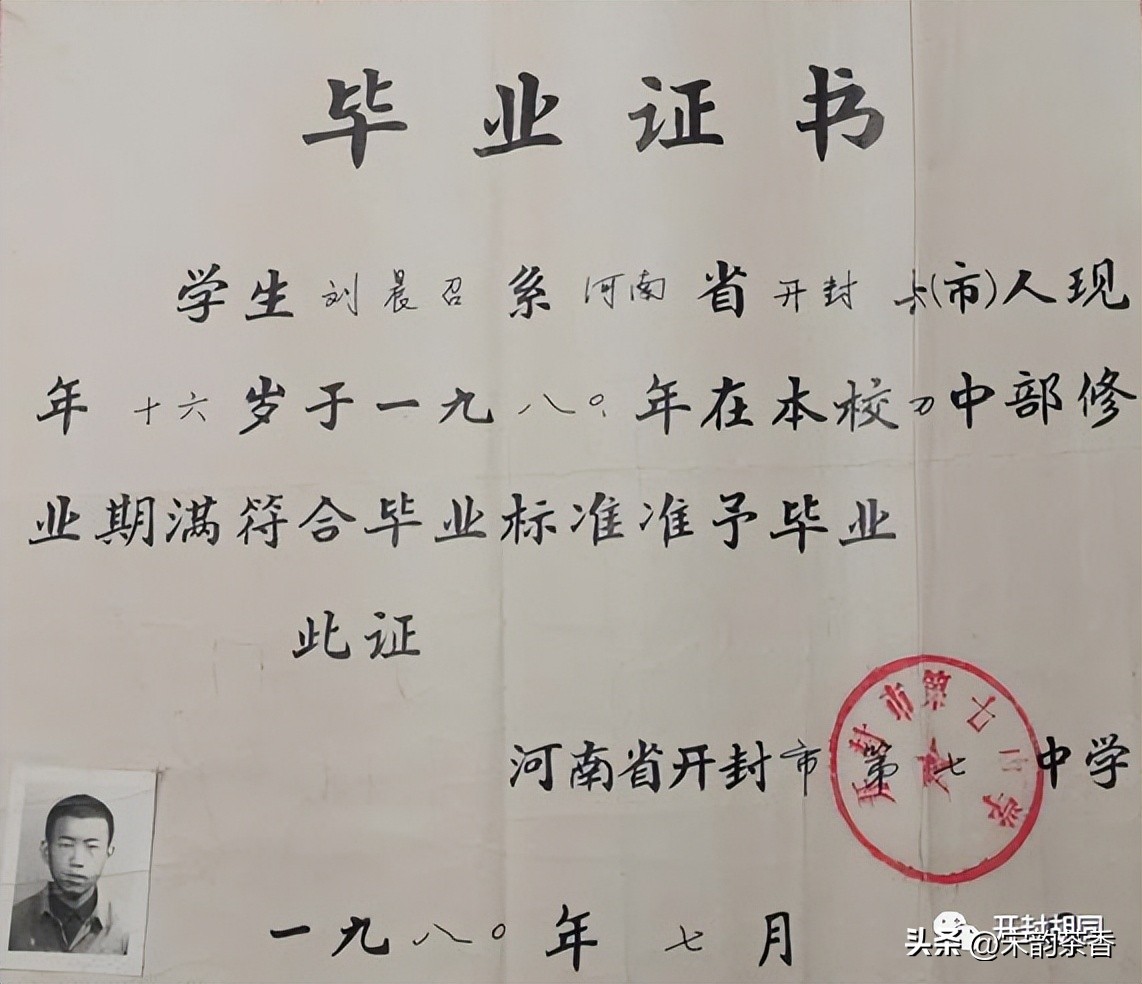 毕业证书
学生刘晨召系河南省开封(市)人现
年十六岁于一九八〇年在本校初中部修
业期满符合毕业标准准予毕业
此证
河南省开封市第七中学
开封市第七中学
一九八〇年七月
开封胡同
头条@宋韵茶香